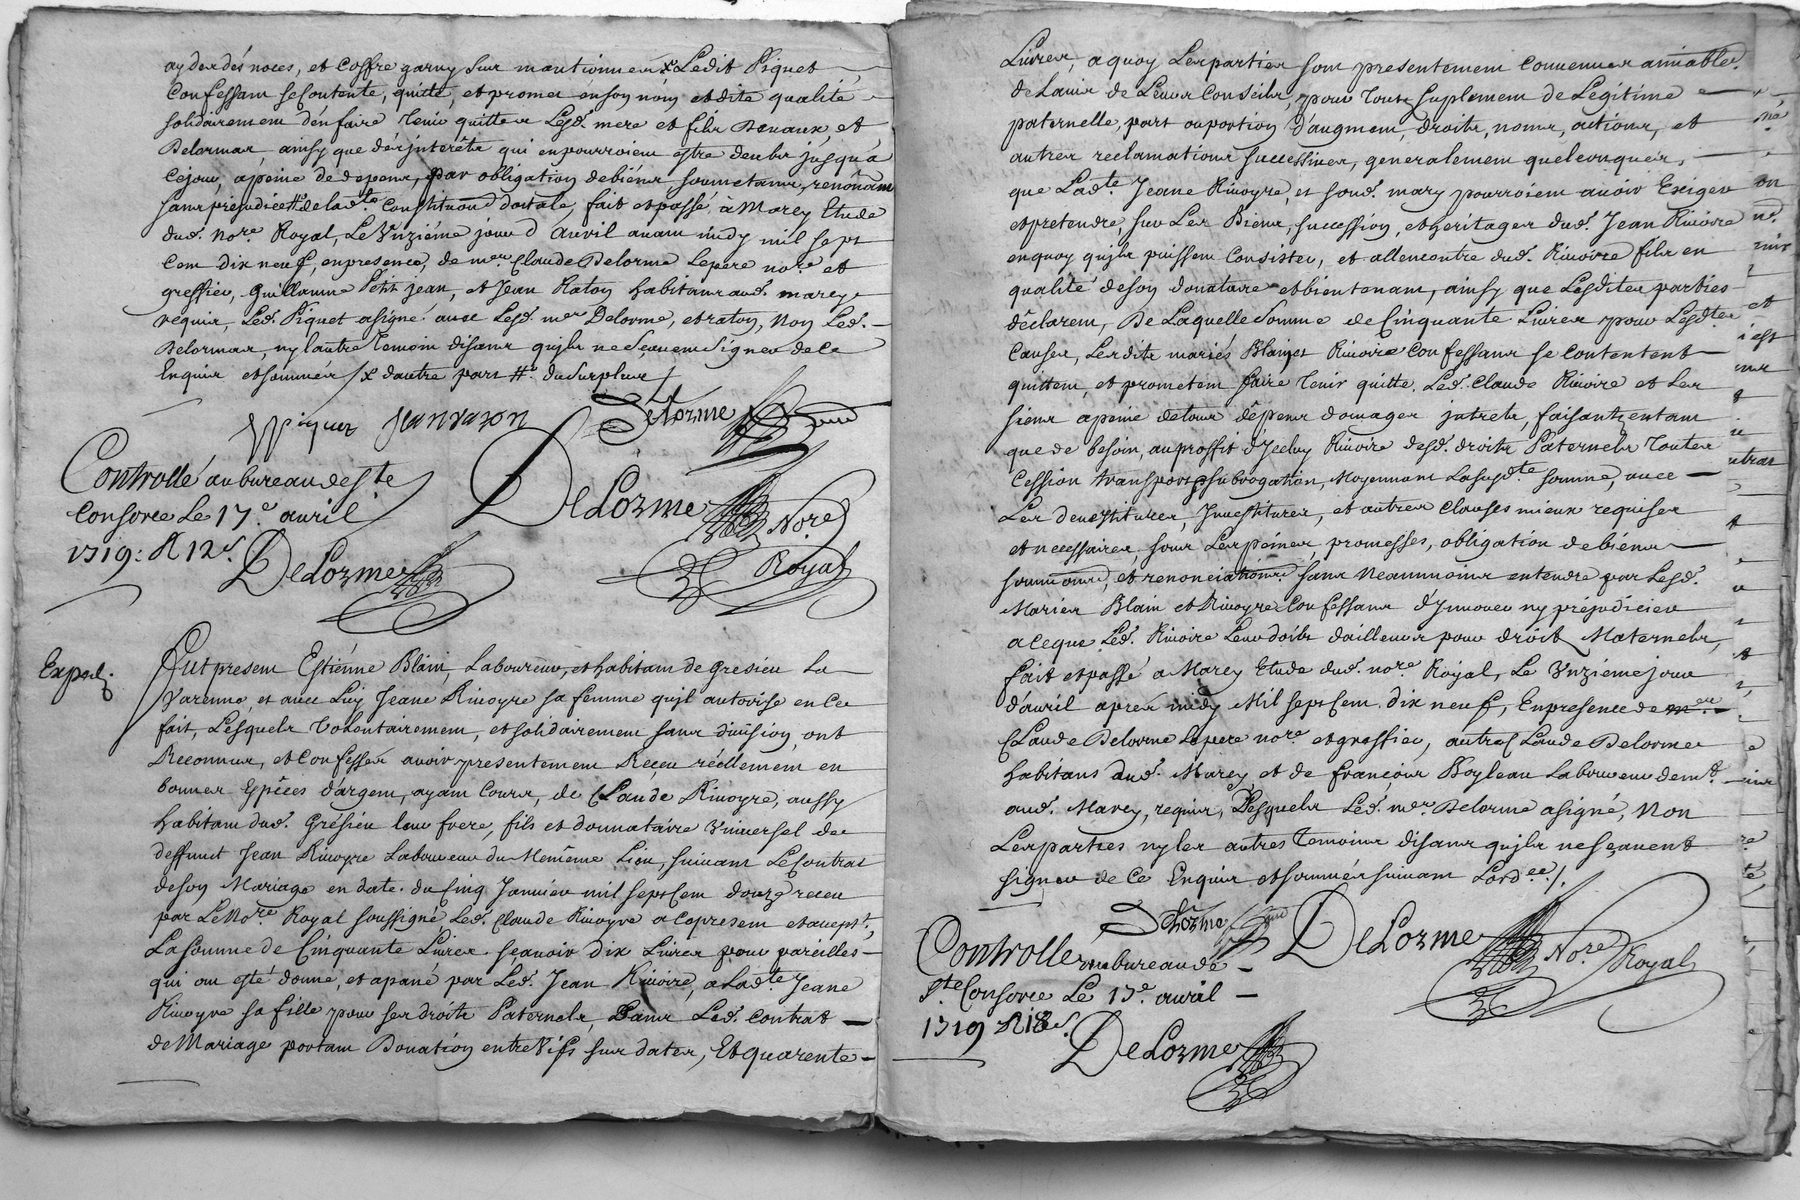 ayder dès noces, et coffre garny sur mantionnez x Ledit Piquet
Confessant se Contente, quitte, et promet en son nom et dite qualité
solidairement d'en faire tenir quitter Lesd. mere et fils Devaux, et
Delormas, ainsy que des jnterêts qui en pourroient estre deubs jusqu'a
ce jour, a peine de depens, par obligation de biens soumetans, renonçant
sans prejudice # de lad.te Constitution dottale, fait et passé à Marcy Etude
dud. no.re Royal, Le Vnziéme jour d'Avril avant midy mil sept
Cent Dix neuf, en presence, de m.re Claude Delorme Le pere no.re et
greffier, Guillaume Petit jean, et Jean Raton habitans aud. marcy
requis, Led. Piquet a signé avec Led. m.re Delorme, et raton, Non Led.
Delormas, ny l'autre Temoin disans qu'jls ne Sçavent Signer de Ce
Enquis et sommés / x d'autre part # du surplus /
Piquet Jean raton Delorme
Controllé au bureau de S.te
Consorce Le 17.e avril
1719: R 12 s.
DeLorme
DeLorme No.re
Royal
Exped.
Fut present Estiénne Blain, Laboureur, et habitant de Gresieu La
Varenne, et avec Luy Jeane Rivoyre sa femme qu'jl autorise en Ce
fait, Lesquels Volontairement, et solidairement sans division, ont
Reconnus, et Confessés avoir presentement Receu réellement en
bonnes Espêces d'argent, ayant Cours, de Claude Rivoyre, aussy
habitant dud. Grésieu leur frere, fils et donnataire Vniversel de
deffunct Jean Rivoyre Laboureur du Memême Lieu, suivant Le Contrat
de son Mariage en date du Cinq Janvier mil sept Cent douze receu
par Le No.re Royal soussigné, Led. Claude Rivoyre a ce present et accept.t,
La somme de Cinquante Livres, sçavoir dix Livres pour pareilles
qui ont esté donné, et apané par Led. Jean Rivoire, a Lad.te Jeane
Rivoyre sa fille pour ses droits Paternels, Dans Led. Contrat
de Mariage portant Donation entre Vifs sus datés, Et quarente
Livres, a quoy Les parties sont presentement Convenues amiable.
de L'avis de Leurs Conseils, pour Tout suplement de Légitime
paternelle, part ou portion d'augment, droits, noms, actions, et
autres reclamations successives, generalement quelconques,
que Lad.te Jeane Rivoyre, et soud. mary pourroient avoir Exiger
et pretendre, sur Les Biens, succession, et héritages dud. Jean Rivoire
en quoy qu'jls puissent Consister, et allencontre dud. Rivoire fils en
qualité de son donataire et bientenant, ainsy que Lesdites parties
déclarent, De Laquelle somme de Cinquante Livres pour Lesd.tes
Causes, Lesdits mariés Blain et Rivoire confessans se contentent
quittent, et prometent faire Tenir quitte Led. Claude Rivoire et Les
siens a peine de tous dépens domages jntrets, faisant en tant
que de besoin, au proffit d'Jceluy Rivoire desd. droits Paternels Toutes
Cession transport subrogation, Moyennant La susd.te somme, avec
Les devestitures, Jnvestitures, et autres Clauses mieux requises
et necessaires sous Les peines, promesses, obligation de biens
soumissions, et renonciations, sans Neanmoins entendre par Lesd.
Mariés Blain et Rivoyre Confessans d'Jnnover ny préjudicier
a ce que Led. Rivoire Leur doibt d'ailleurs pour droit Maternels,
fait et passé a Marcy Etude dud. no.re Royal, Le Vnziéme jour
d'avril apres midy Mil sept Cent dix neuf, En presence de m.re
Claude Delorme Le pere no.re et greffier, autre Claude Delorme
habitans dud. Marcy et de françois Boyleau Laboureur dem.t
aud. Marcy, requis, Desquels Led. m.re Delorme a signé, Non
Les parties ny les autres Temoins disans qu'jls ne sçavent
signer de Ce Enquis et sommés suivant Lord.ce /.
Delorme
DeLorme No.re Royal
Controllé au bureau de
S.te Consorce Le 17.e avril
1719 R 18 s.
DeLorme